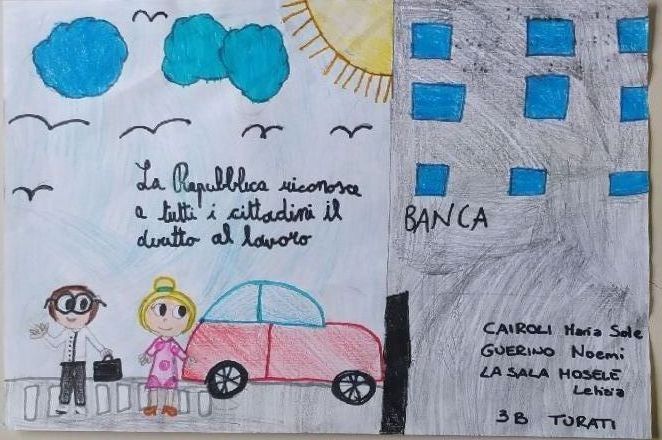 La Repubblica riconosce
a tutti i cittadini il
diritto al lavoro
BANCA
CAIROLI Maria Sole
GUERINO Noemi
LA SALA MOSELE
Letizia
3B TURATI